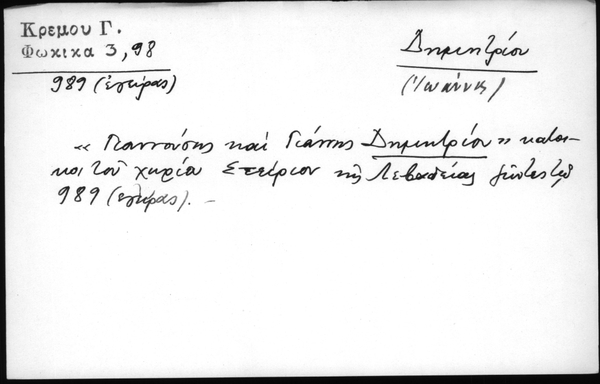 Κρεμου Γ.
Φωκικα 3, 98
989 (ἐγείρας)
Δημητρίου
(Ἰωάννης)
« Γιαννούσης καὶ Γιάννης Δημητρίου » κατοι-
κοι τοῦ χωρίου Στείριον τῆς Λεβαδείας
989 (ἐγείρας). –